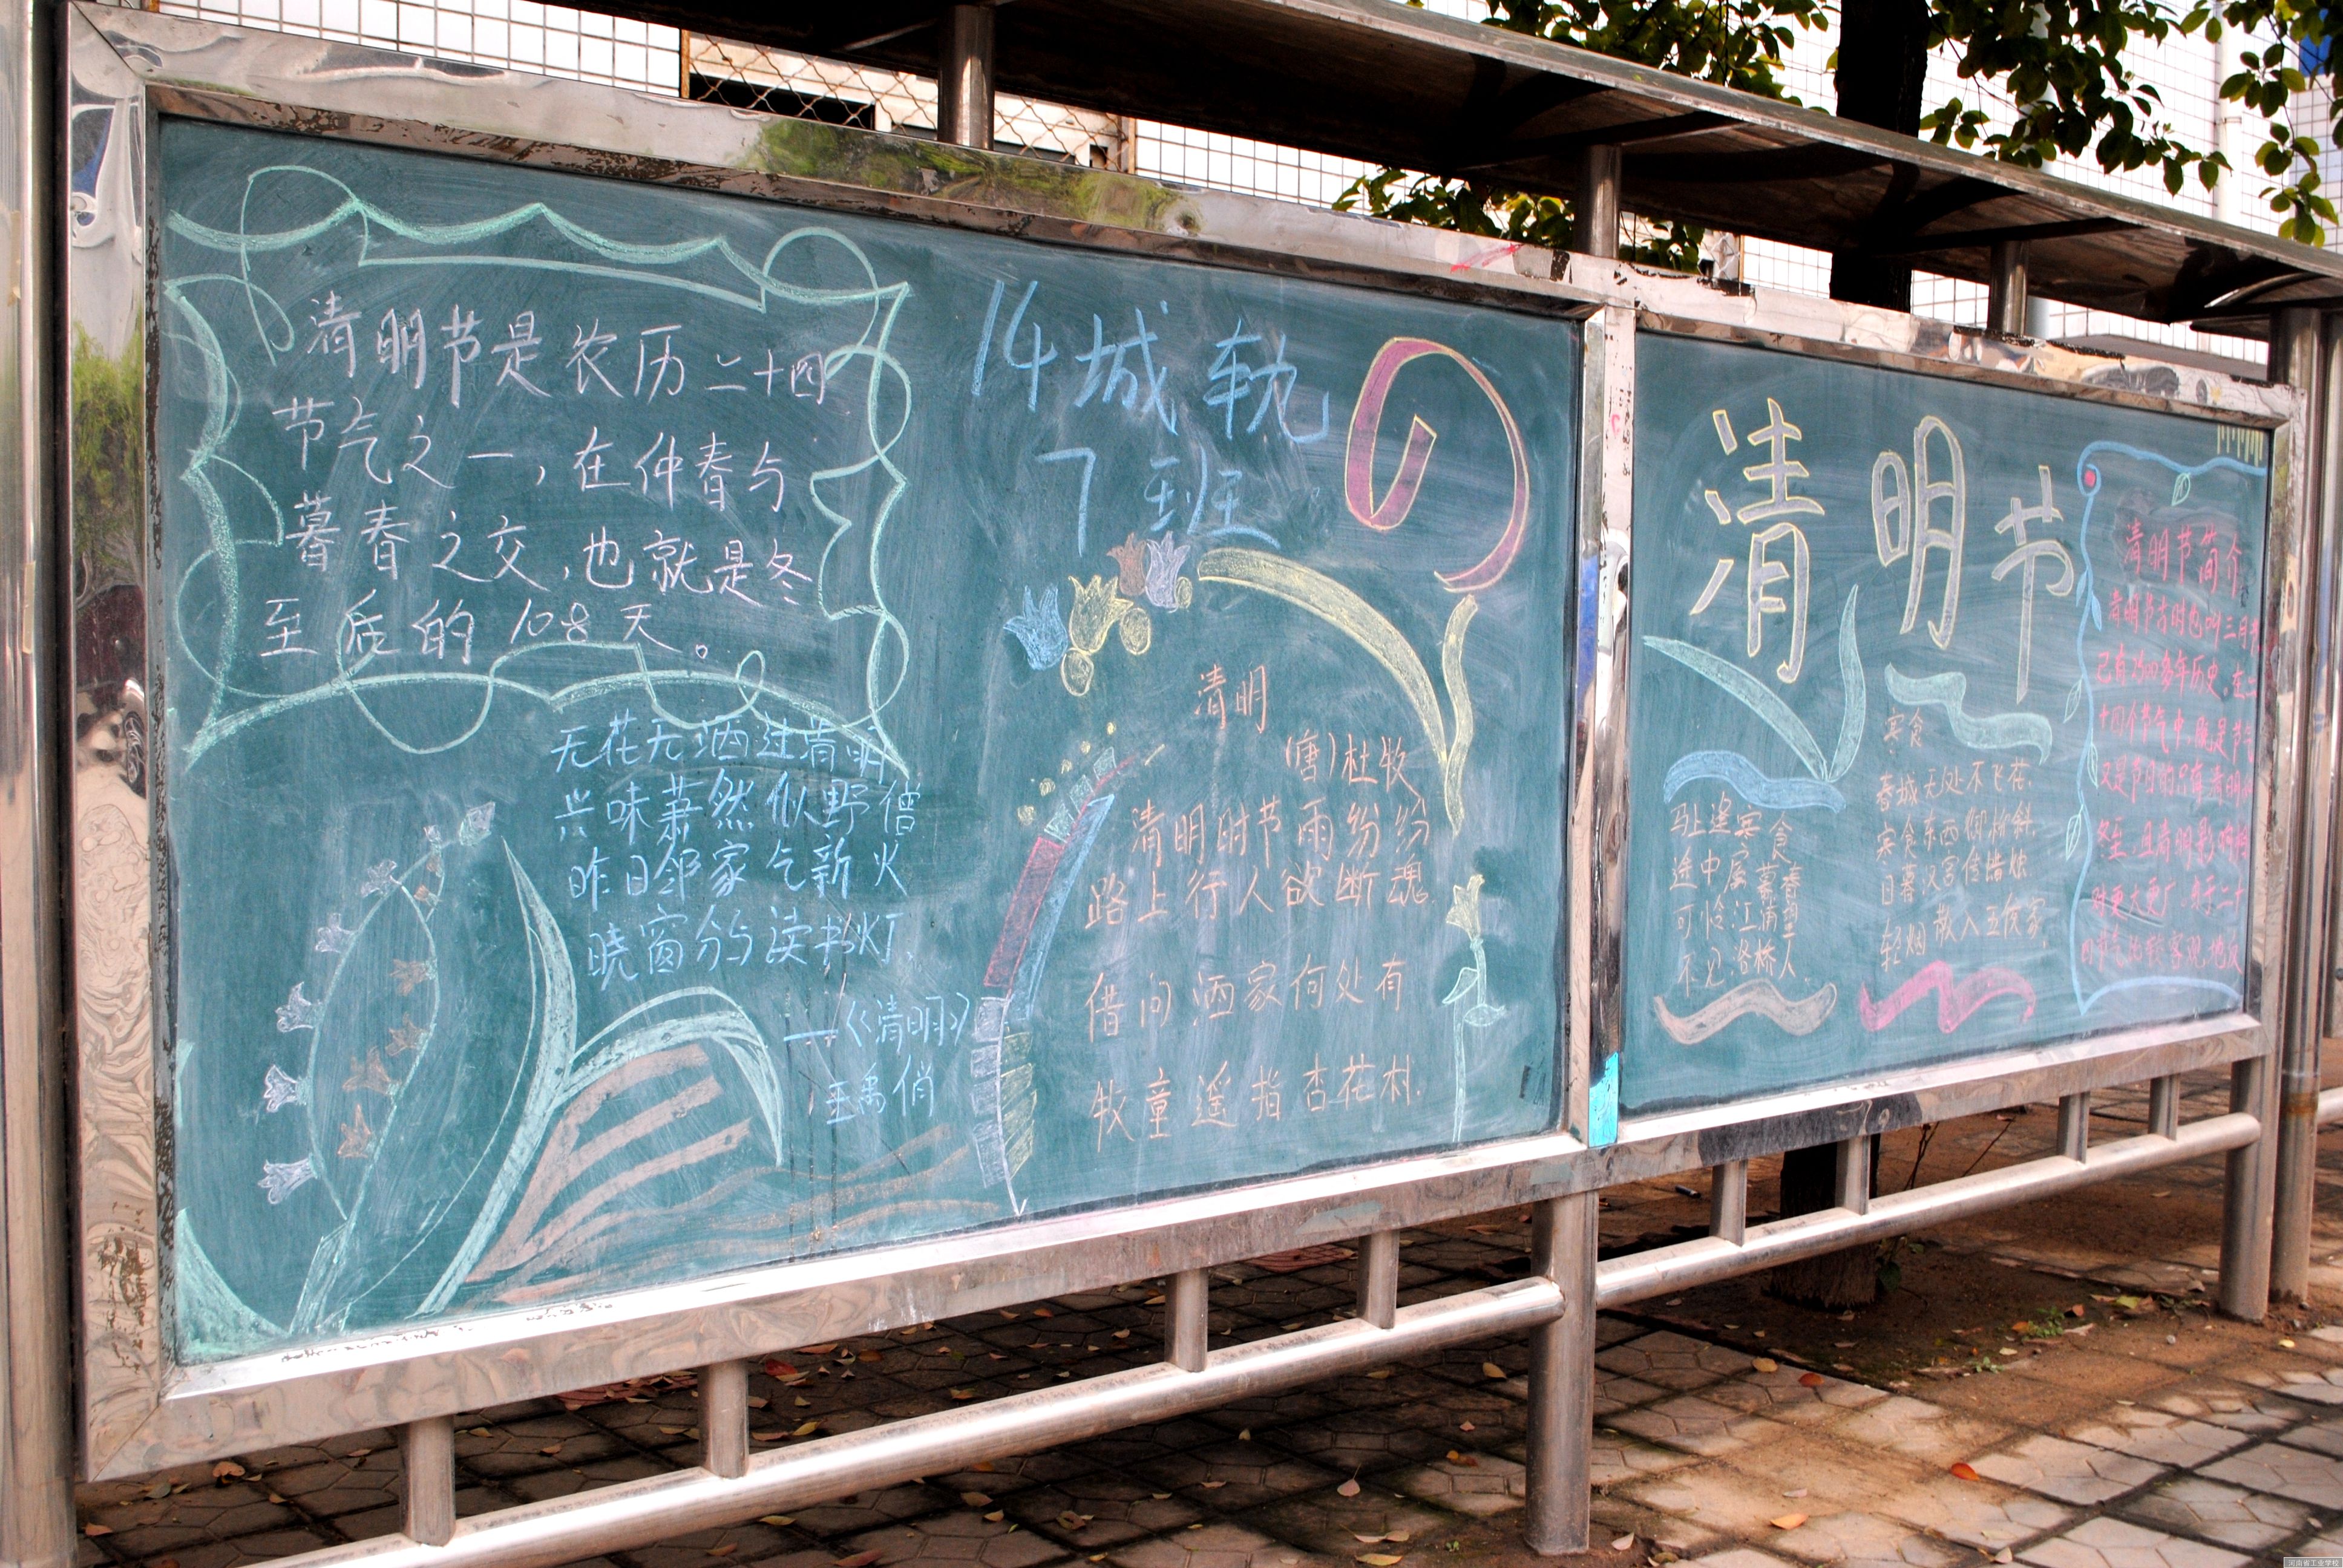 清明节是农历二十四
节气之一，在仲春与
暮春之交，也就是冬
至后的108天。
无花无酒过清明
兴味萧然似野僧
昨日邻家乞新火
晓窗分与读书灯.
——《清明》
王禹俏
14城轨
7班
の
清明
(唐)杜牧
清明时节雨纷纷
路上行人欲断魂
借问酒家何处有
牧童遥指杏花村.
清明节
马上逢寒食
途中属暮春
可怜江浦望
不见洛桥人
寒食
春城无处不飞花
寒食东西御柳斜
日暮汉宫传蜡烛
轻烟散入五侯家
清明节简介
清明节古时也叫三月节
已有2000多年历史,在二
十四个节气中,既是节气
又是节日的只有清明
冬至.且清明影响
时更大更广.由于二十
四节气比较客观地反
河南省工业学校